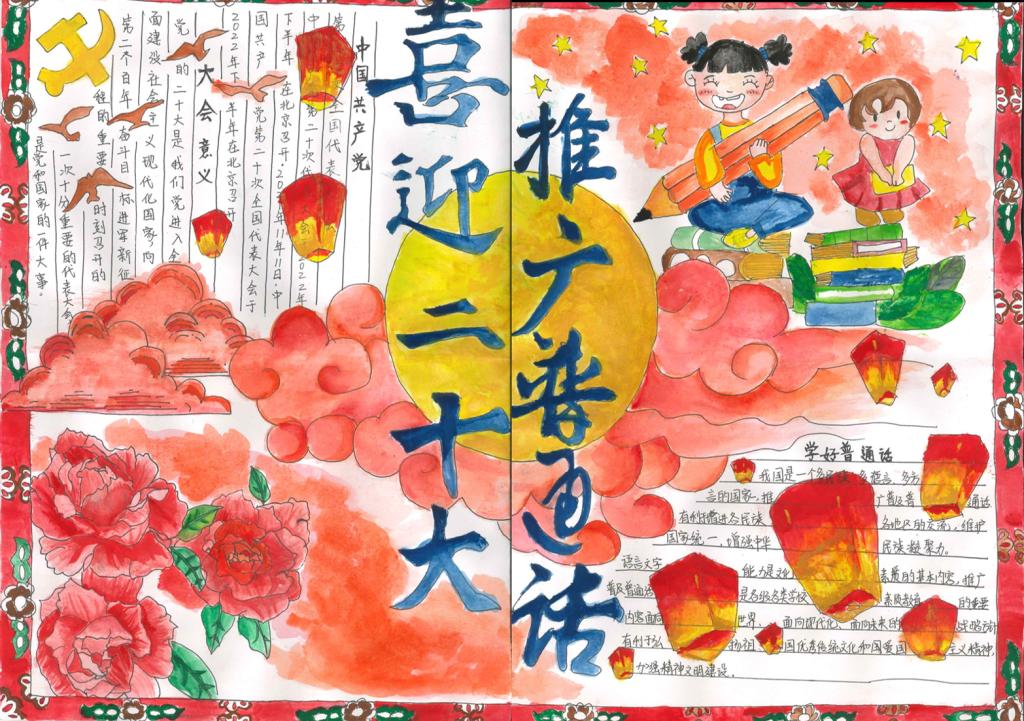 喜迎二十大
推广普通话
中国共产党
第 全国代表
中 第二十次代 2022年
下半年 在北京召开。 年11年11日,中
国共产党第二十次全国代表大会于
2022年下半年在北京召开
大会意义
党的二十大是我们党进入全
面建设社会主义现代化国家、向
第二个百年奋斗目标进军新征
程的重要时刻召开的
一次十分重要的代表大会
是党和国家的一件大事。
学好普通话
我国是一个多民族、多语言、多方
言的国家,推 广普及普 通话
有利于增进各民族 各地区的交流,维护
国家统一,增强中华 民族凝聚力。
语言文字 能力是文化 素质的基本内容,推广
普及普通话 是各级各类学校 素质教育 的重要
内容面向 世界、面向现代化、面向未来的 战略方针
有利于弘 扬祖 国优秀传统文化和国爱国 主义精神,
加强精神文明建设。